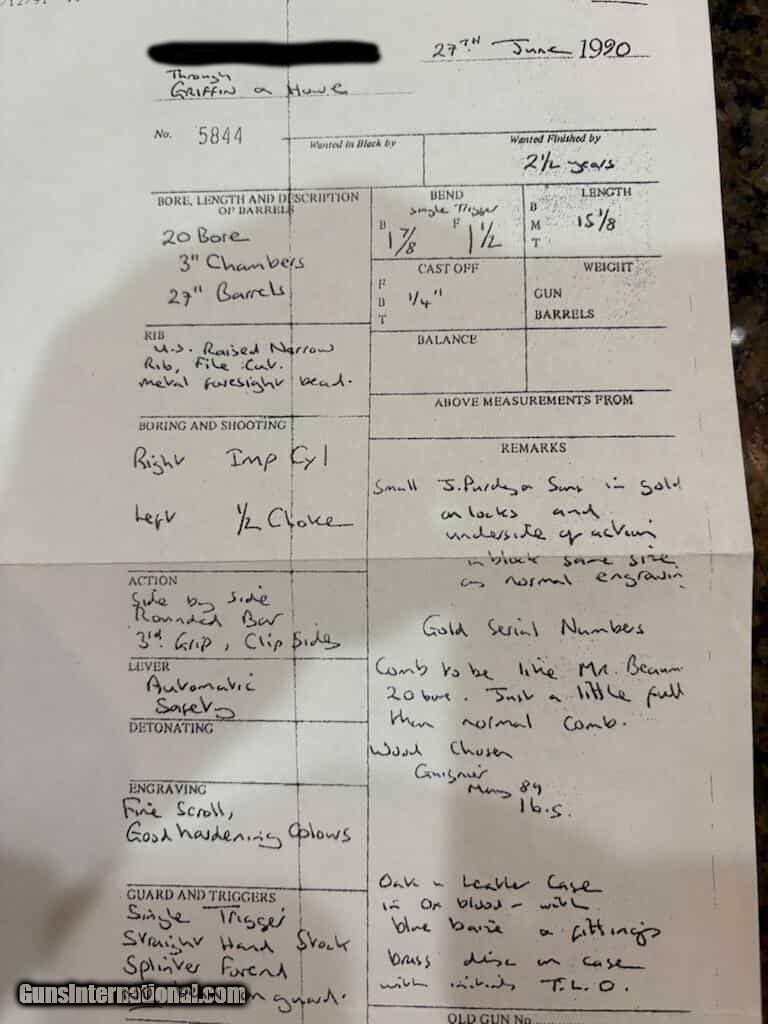 27TH June 1990
Through
GRIFFIN & Howe
No. 5844
Wanted in Black by
Wanted Finished by
2 1/2 years
BORE, LENGTH AND DESCRIPTION
OF BARRELS
20 Bore
3" Chambers
27" Barrels
BEND
Single Trigger
B 1 7/8 F 1 1/2
LENGTH
B
M 15 1/8
T
CAST OFF
F
B 1/4"
T
WEIGHT
GUN
BARRELS
RIB
U.S. Raised Narrow
Rib, File Cut.
metal foresight bead.
BALANCE
ABOVE MEASUREMENTS FROM
BORING AND SHOOTING
Right Imp Cyl
Left 1/2 Choke
REMARKS
Small J. Purdey & Sons in gold
on locks and
underside of action
in block same size
as normal engravin
Gold Serial Numbers
Comb to be like Mr.
20 bore. Just a little full
than normal comb.
Wood Chosen
89
Oak & Leather Case
in Ox blood - with
blue baize & fittings
brass disc on case
with initials T.L.O.
ACTION
Side by side
Rounded Bar
3rd. Grip, Clip Sides
LEVER
Automatic
Safety
DETONATING
ENGRAVING
Fine Scroll,
Good hardening Colours
GUARD AND TRIGGERS
Single Trigger
Straight Hand Stock
Splinter Forend
on guard.
OLD GUN No.
GunsInternational.com